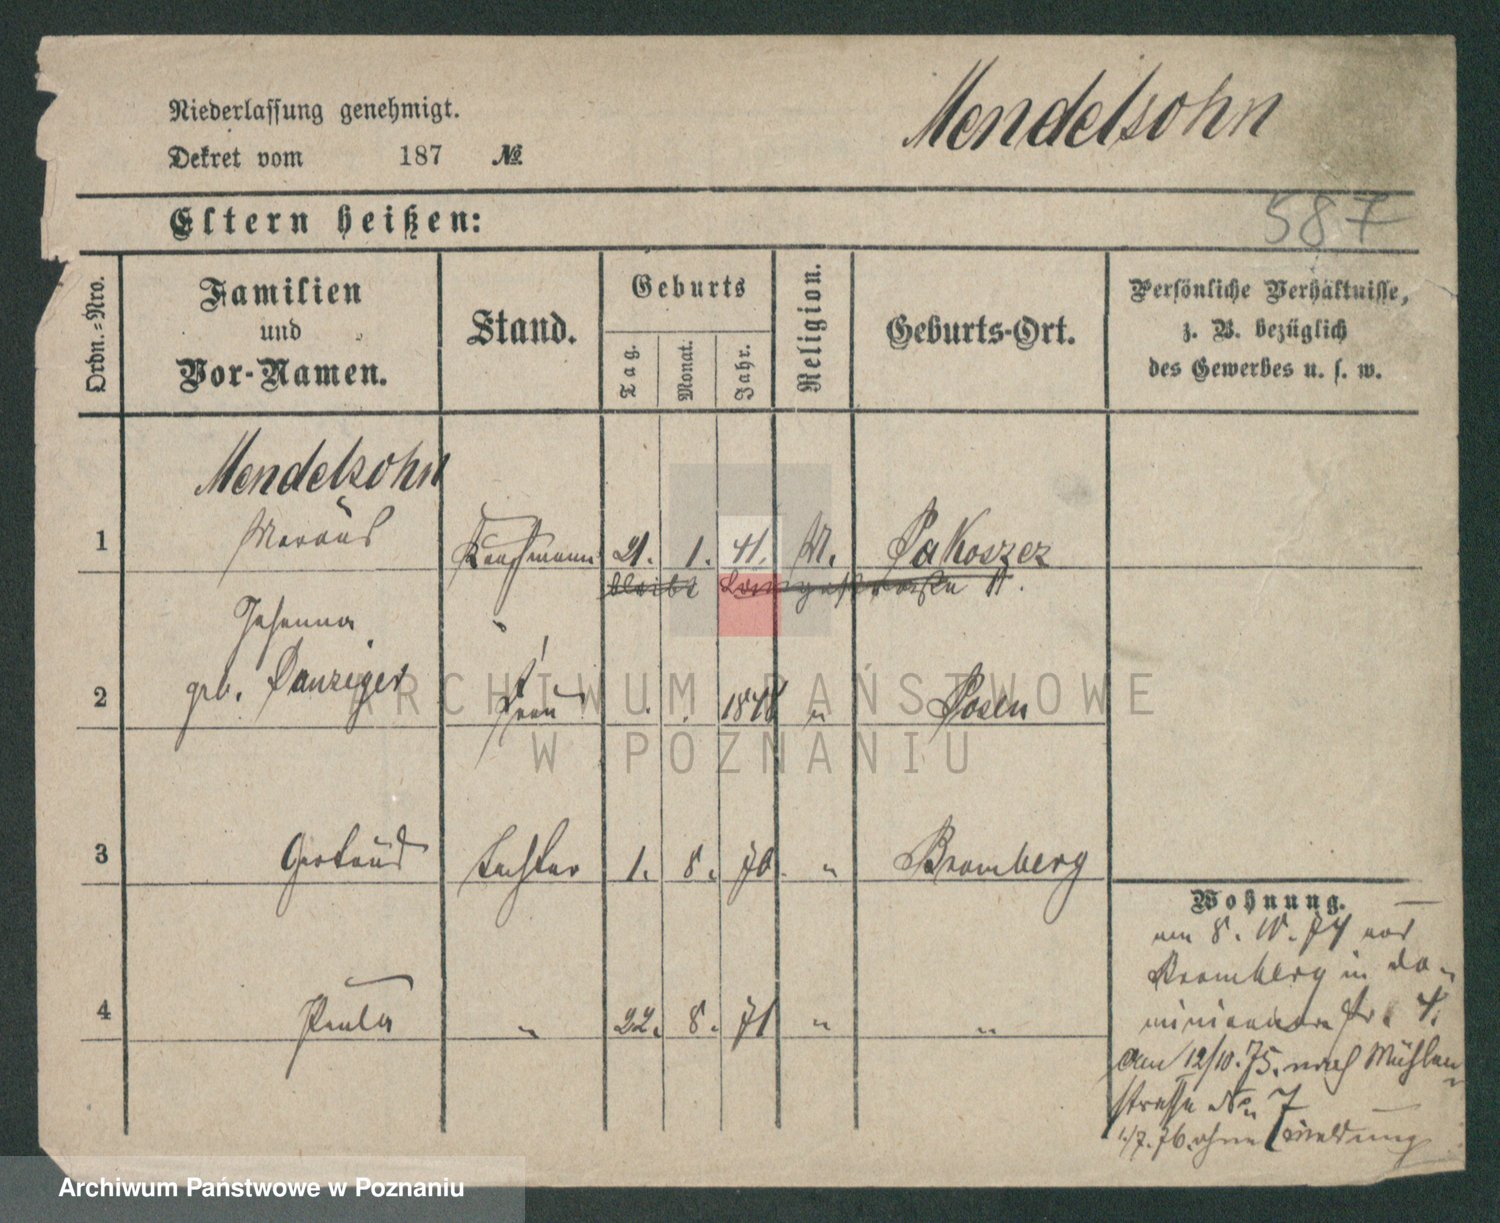 Mendelsohn
Niederlassung genehmigt.
Dekret vom 187 №
Eltern heißen:
587
Ordn.=Nro.
Familien und Vor-Namen.
Stand.
Geburts
Tag.
Monat.
Jahr.
Religion.
Geburts-Ort.
Persönliche Verhältnisse, z. B. bezüglich des Gewerbes u. s. w.
Mendelsohn
1 Marcus Kaufmann 21. 1. 41. M. Pakoszez
bleibt
Johanna
2 geb. Danziger Frau Posen
3 Gertrud Tochter 1. 8. 70. " Bromberg
4 Paula " 22. 8. 71 " "
Wohnung.
am 8. 10. 74 aus
Bromberg in Do-
minicaner Str. 4.
am 12/10. 75. nach Mühlen-
strasse No 7
1/7. 76. ohne Meldung
ARCHIWUM PAŃSTWOWE
W POZNANIU
Archiwum Państwowe w Poznaniu